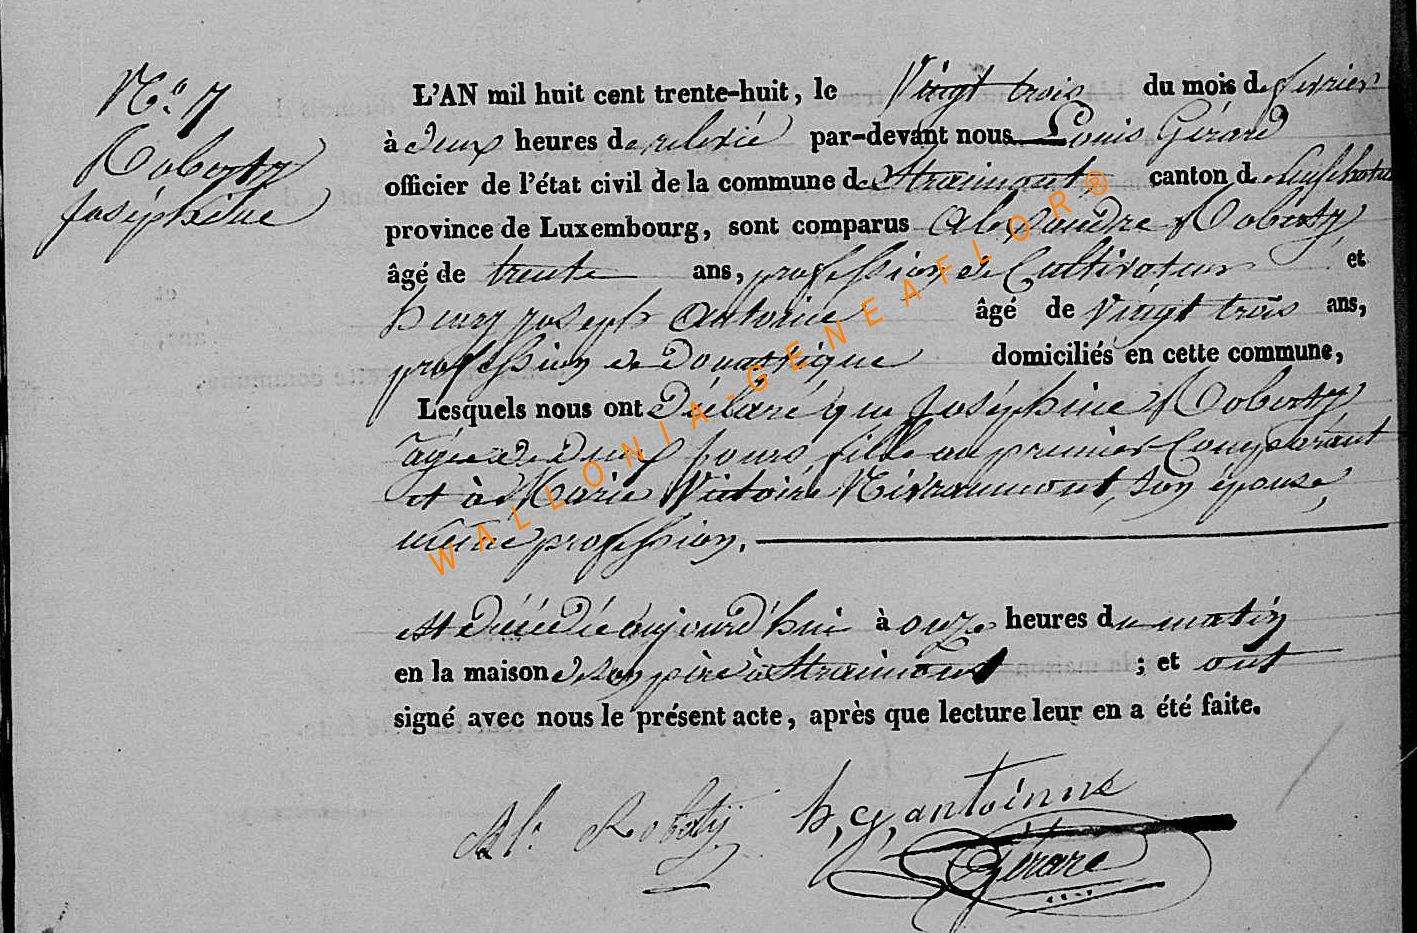 N.° 7
Roberty
Joséphine
L'AN mil huit cent trente-huit, le Vingt trois du mois de fevrier
à deux heures de relevée par-devant nous Louis Gérard
officier de l'état civil de la commune de Straimont, canton de Neufchateau
province de Luxembourg, sont comparus Alexandre Roberty
âgé de trente ans, profession de Cultivateur et
henry joseph antoine âgé de Vingt trois ans,
profession de Domestique domiciliés en cette commune,
Lesquels nous ont Déclaré que Joséphine Roberty
agée de Deux jours fille au premier Comparant
et à Marie Victoire Nivraumont, son épouse,
même profession.
est Décédée aujourd'hui à onze heures du matin
en la maison de son père à Straimont ; et ont
signé avec nous le présent acte, après que lecture leur en a été faite.
Al. Roberty h, j, antoinne
Gérard
WALLONIA-GENEAFLOR®